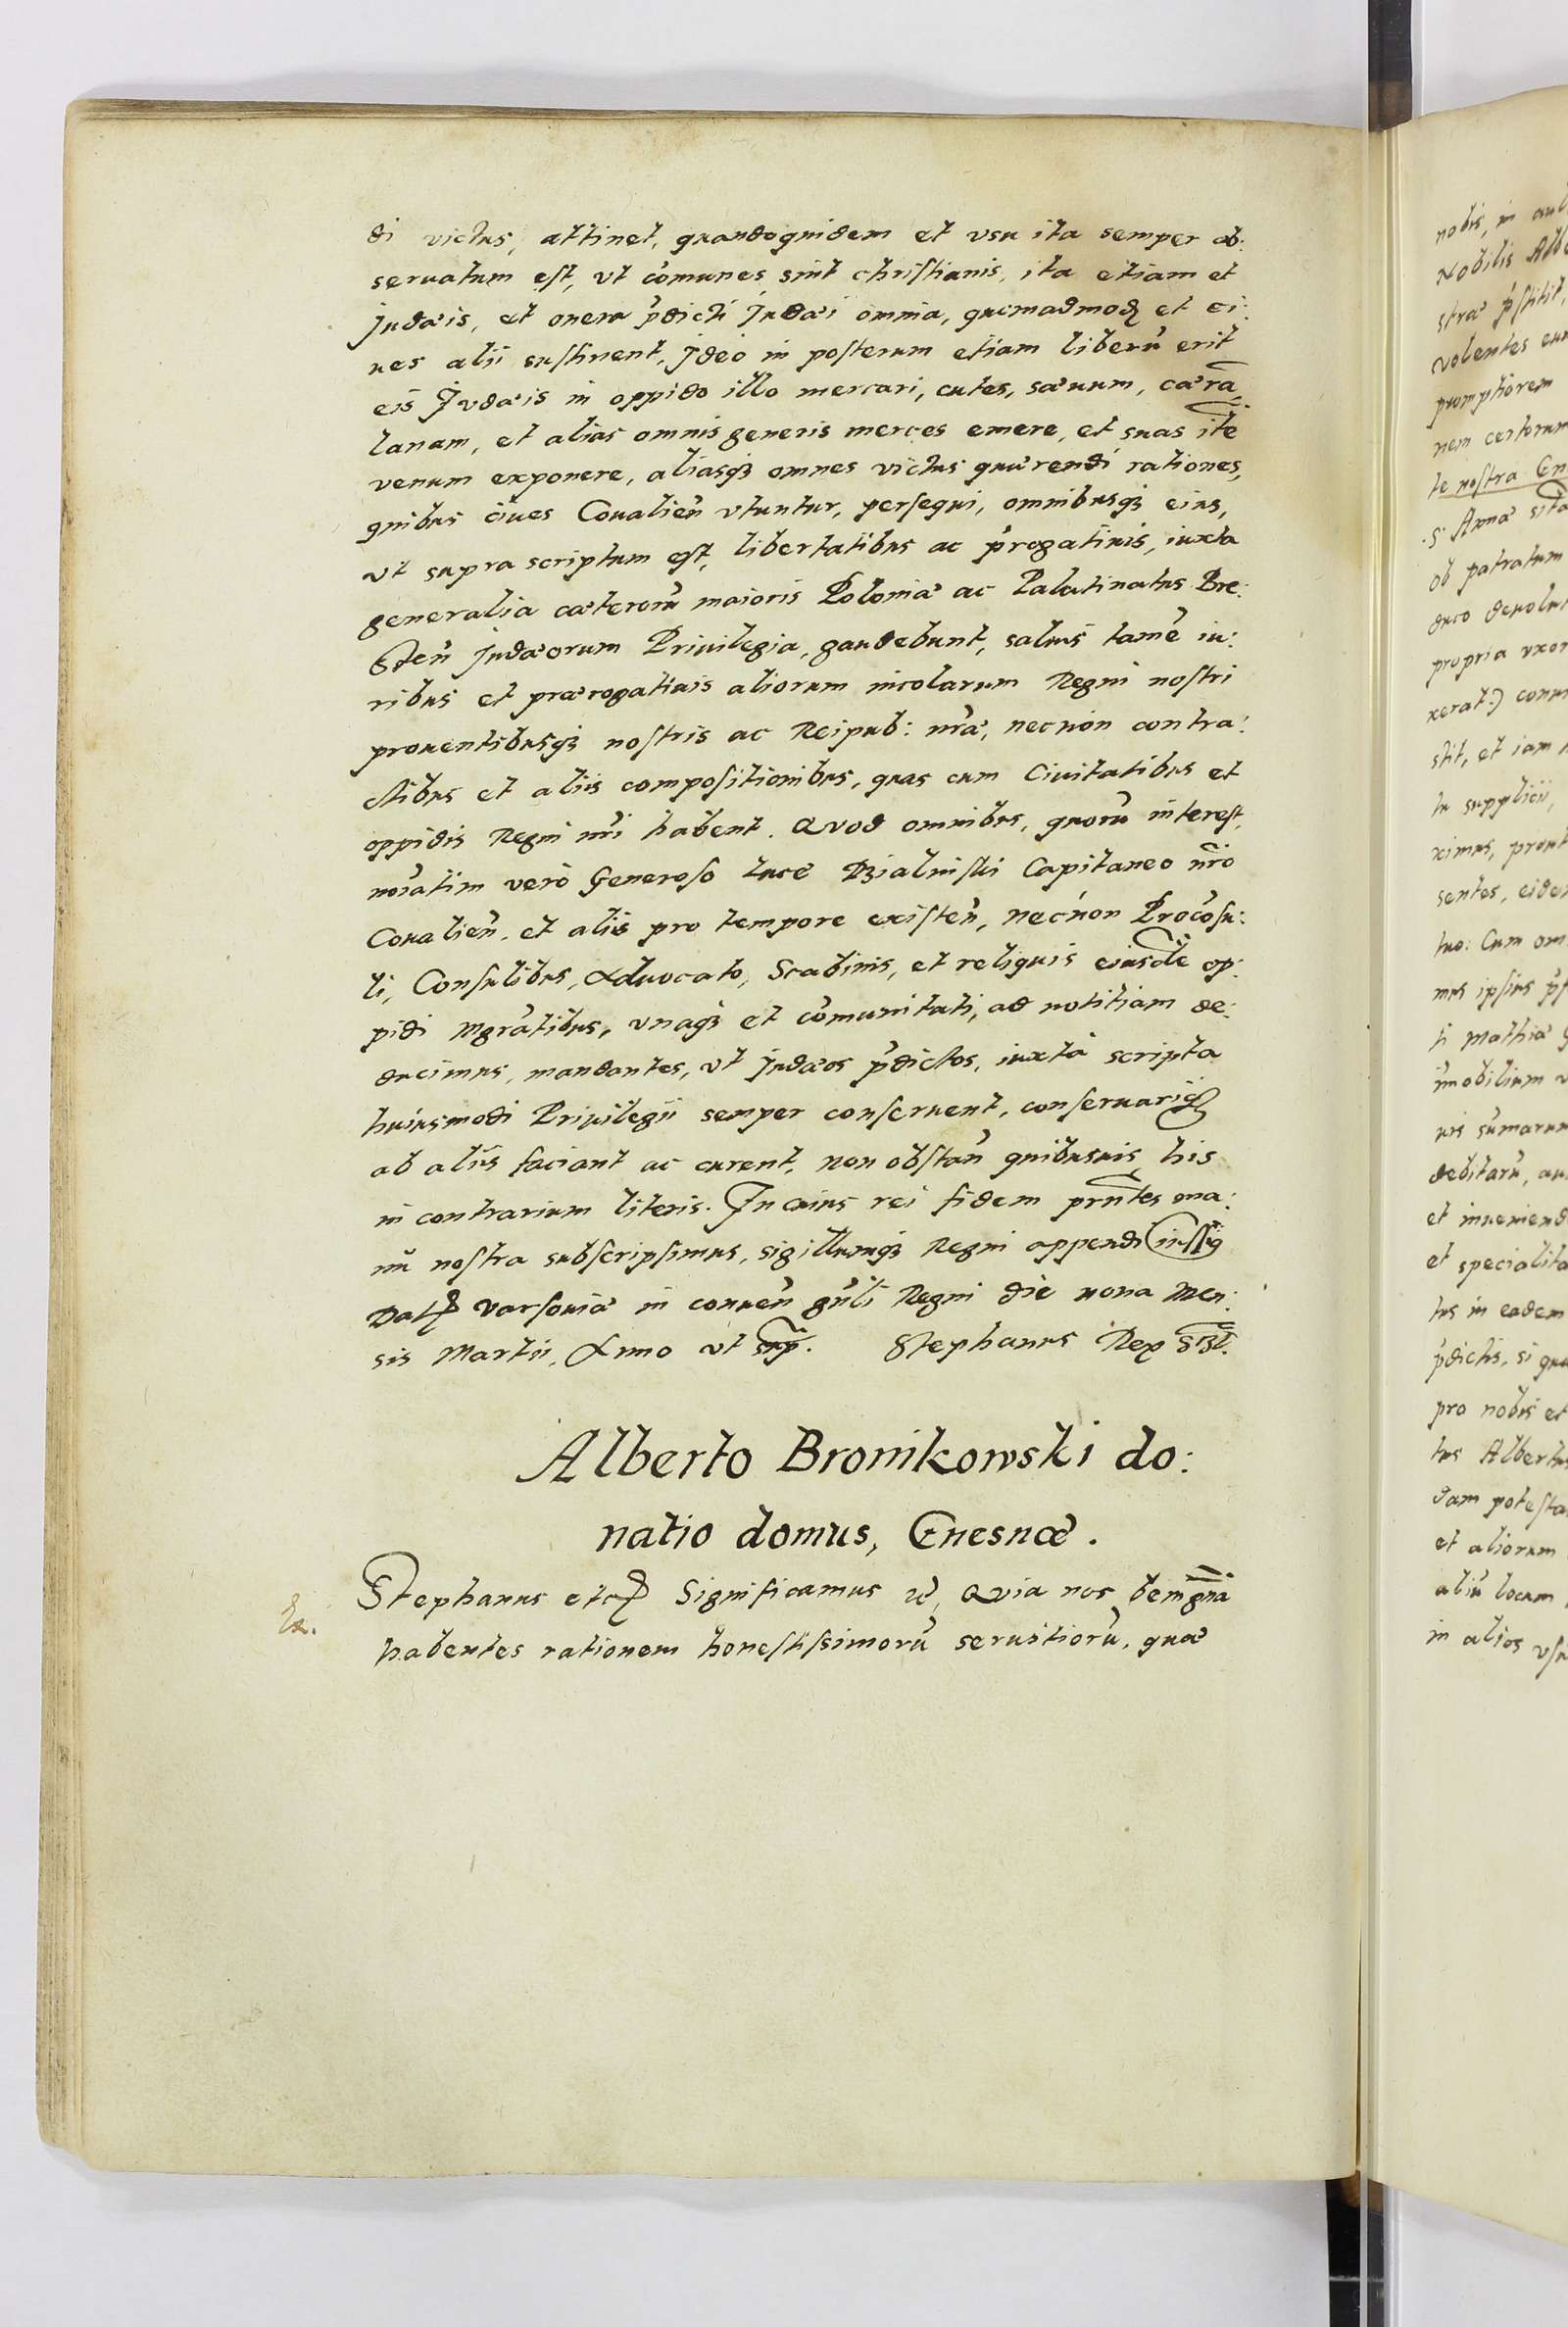 di victus, attinet, quandoquidem et vsu ita semper ob:
seruatum est, vt cõmunes sint christianis, ita etiam et
Judæis, et onera p̃dicti Judæi omnia, quemadmodꝫ et ci:
ues alii sustinent, Ideò in posterum etiam liberũ erit
eis Judæis in oppido illo mercari, cutes, sæuum, cærã,
lanam, et alias omnis generis merces emere, et suas itẽ
venum exponere, aliasqꝫ omnes victus quærendi rationes,
quibus ciues Coualieñ vtuntur, persequi, omnibusqꝫ eius,
vt supra scriptum est, libertatibus ac p̃rogatiuis, iuxta
generalia cæterorũ maioris Poloniæ ac Palatinatus Bre:
steñ Judæorum Priuilegia, gaudebunt, saluis tamẽ iu:
ribus et prærogatiuis aliorum incolarum Regni nostri
prouentibusqꝫ nostris ac Reipub: nr̃æ, necnon contra:
ctibus et aliis compositionibus, quas cum Ciuitatibus et
oppidis Regni nr̃i habent. Quod omnibus, quorũ interest,
noĩatim verò Generoso Lucæ Dzialinski Capitaneo nr̃o
Coualieñ, et aliis pro tempore existeñ, necnon Procõsu:
li, Consulibus, Aduocato, Scabinis, et reliquis eiusdẽ op:
pidi Mgr̃atibus, vnaqꝫ et cõmunitati, ad notitiam de:
ducimus, mandantes, vt Judæos p̃dictos, iuxtà scripta
huiusmodi Priuilegii semper conseruent, conseruariqꝫ
ab aliis faciant ac curent, non obstañ quibusuis his
in contrarium literis. In cuius rei fidem prñtes ma:
nũ nostra subscripsimus, sigillumqꝫ Regni appendi iussiꝫ
Datꝫ Varsouiæ in conueñ gñli Regni die nona Men:
sis Martii, Anno vt sup̃. Stephanus Rex sszt.
Alberto Bronikowski do:
natio domus, Gnesnæ.
Stephanus etcꝫ Significamus &c̃, Quia nos benignã
habentes rationem honestissimorũ seruitiorũ, quæ
Ex.
nobis, in
Nobilis
stræ p̃stitit,
volentes
promptiorem
nem certorum
te nostra
S. Annæ
ob patratum
propria
xerat:)
stit, et iam
supplicii,
ximus,
sentes,
tuo: Cum
mus ipsius
Mathiæ
im̃obilium
uis sũmarum
debitarũ,
et inueniend
et specialit
tus in eadem
p̃dictis, si
pro nobis et
tus Albertus
dam potesta
et aliorum
aliũ locum
in alios